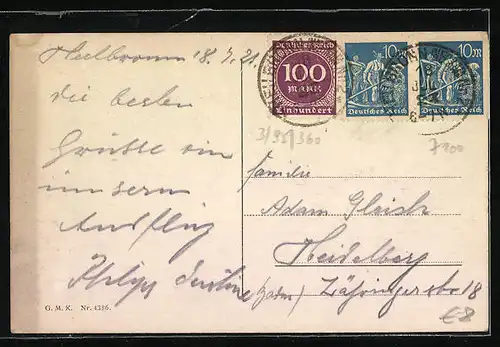 Heilbronn 18.7.21.
die besten
Grüsse von
unserm
Ausflug
Philipp
G. M. K. Nr. 4316.
Deutsches Reich
100
MARK
Einhundert
10M
Deutsches Reich
10M
Deutsches Reich
HEILBRONN
3/95/360
7100
Familie
Adam Gleich
Heidelberg
(Baden) Zähringerstr 18
€8